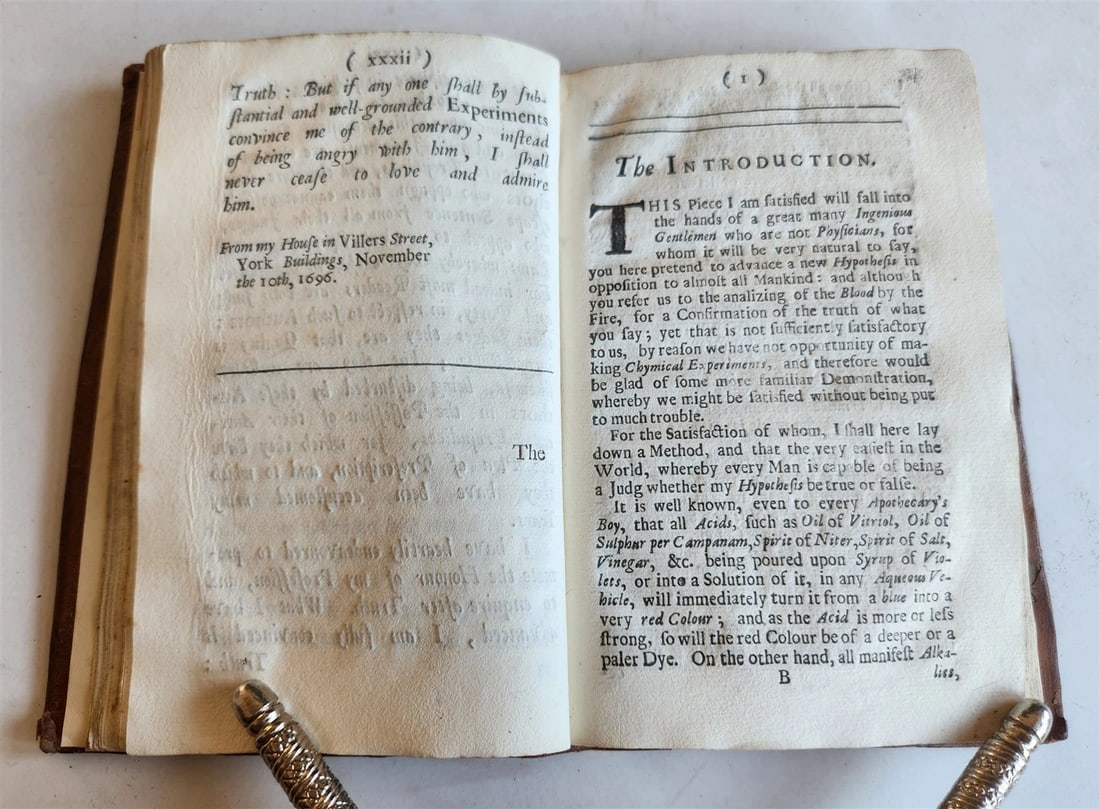 ( xxxii )
Truth : But if any one ſhall by ſub-
ſtantial and well-grounded Experiments
convince me of the contrary, inſtead
of being angry with him, I ſhall
never ceaſe to love and admire
him.
From my Houſe in Villers Street,
York Buildings, November
the 10th, 1696.
The
( 1 )
The INTRODUCTION.
THIS Piece I am ſatisfied will fall into
the hands of a great many Ingenious
Gentlemen who are not Phyſicians, for
whom it will be very natural to ſay,
you here pretend to advance a new Hypotheſis in
oppoſition to almoſt all Mankind: and although
you refer us to the analizing of the Blood by the
Fire, for a Confirmation of the truth of what
you ſay; yet that is not ſufficiently ſatisfactory
to us, by reaſon we have not opportunity of ma-
king Chymical Experiments, and therefore would
be glad of ſome more familiar Demonſtration,
whereby we might be ſatisfied without being put
to much trouble.
For the Satisfaction of whom, I ſhall here lay
down a Method, and that the very eaſieſt in the
World, whereby every Man is capable of being
a Judg whether my Hypotheſis be true or falſe.
It is well known, even to every Apothecary's
Boy, that all Acids, ſuch as Oil of Vitriol, Oil of
Sulphur per Campanam, Spirit of Niter, Spirit of Salt,
Vinegar, &c. being poured upon Syrup of Vio-
lets, or into a Solution of it, in any Aqueous Ve-
hicle, will immediately turn it from a blue into a
very red Colour; and as the Acid is more or leſs
ſtrong, ſo will the red Colour be of a deeper or a
paler Dye. On the other hand, all manifeſt Alka-
B
lies,